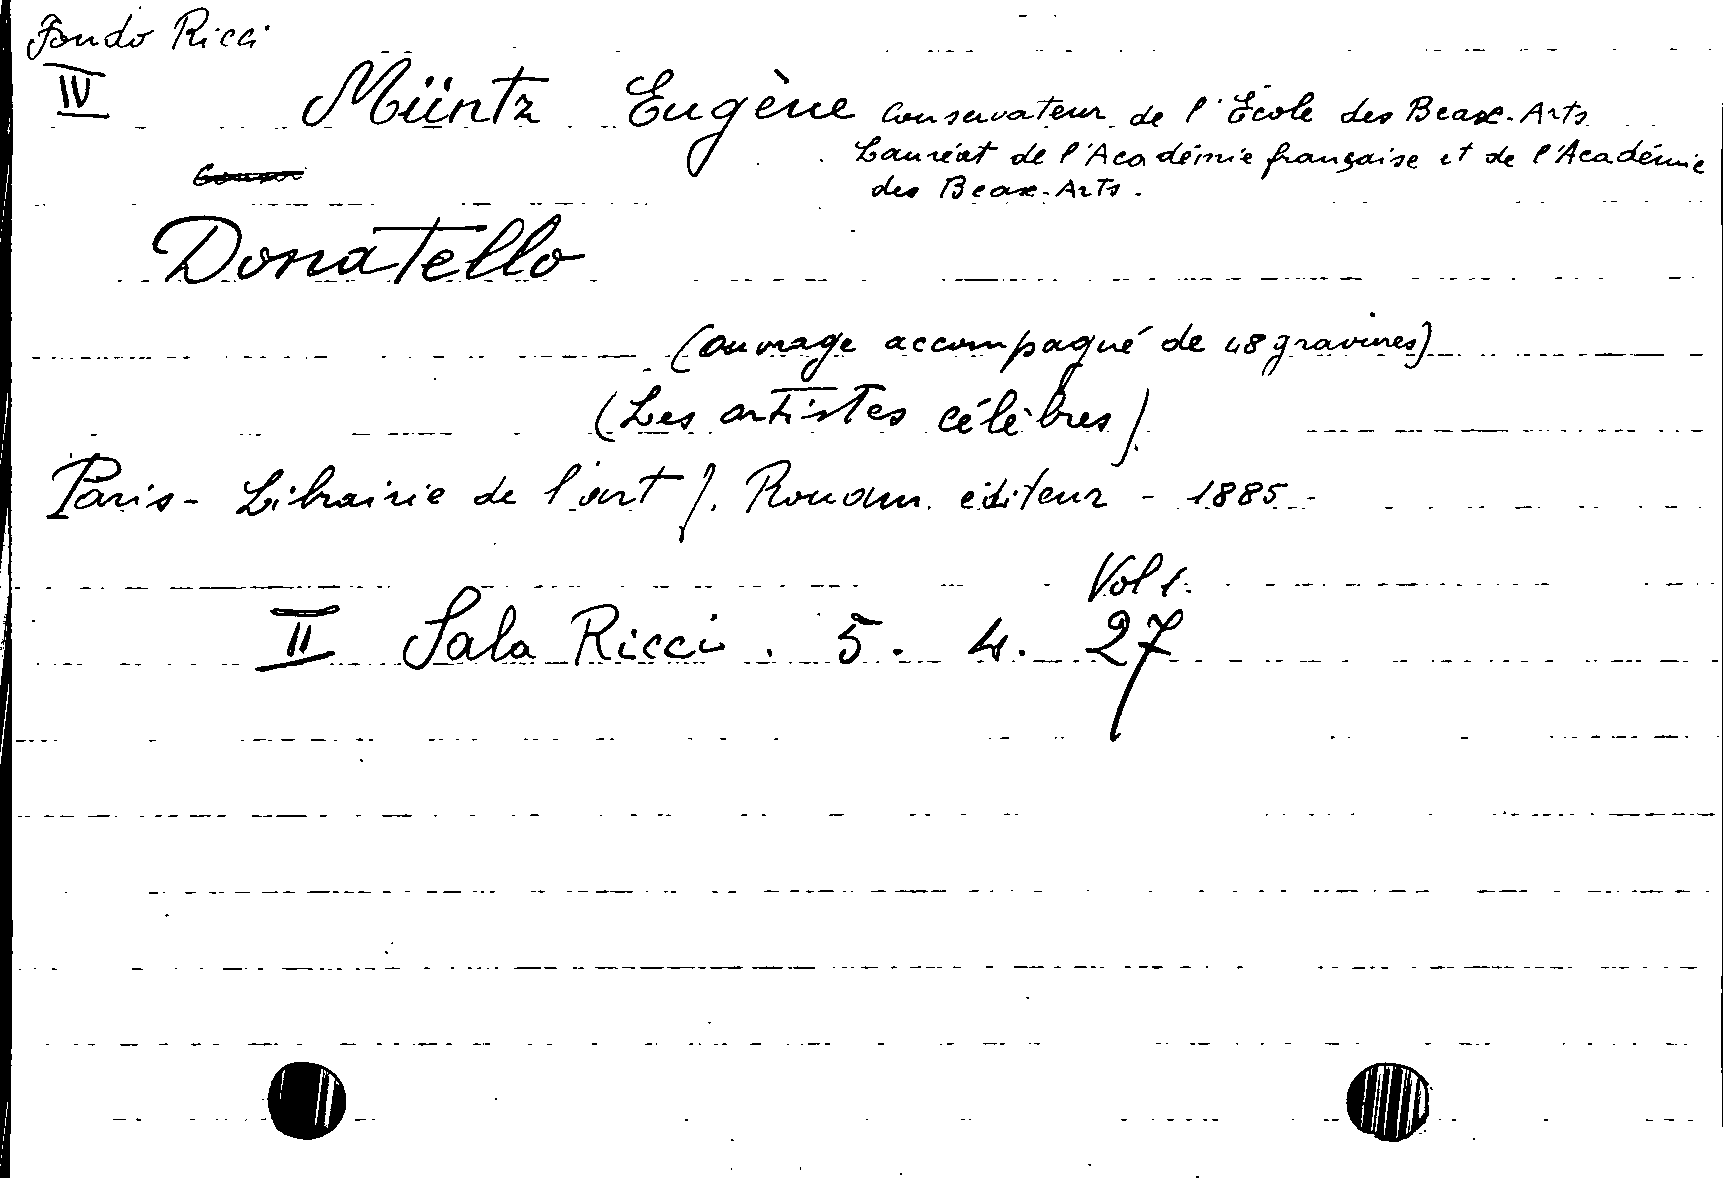 Fondo Ricci
IV Müntz Eugène Conservateur de l'École des Beaux-Arts
Lauréat de l'Académie française et de l'Académie
des Beaux-Arts.
Donatello
(ouvrage accompagné de 48 gravures)
(Les artistes célèbres)
Paris - Librairie de l'art J. Rouam. éditeur - 1885 -
Vol 1.
II Sala Ricci . 5 . 4. 27